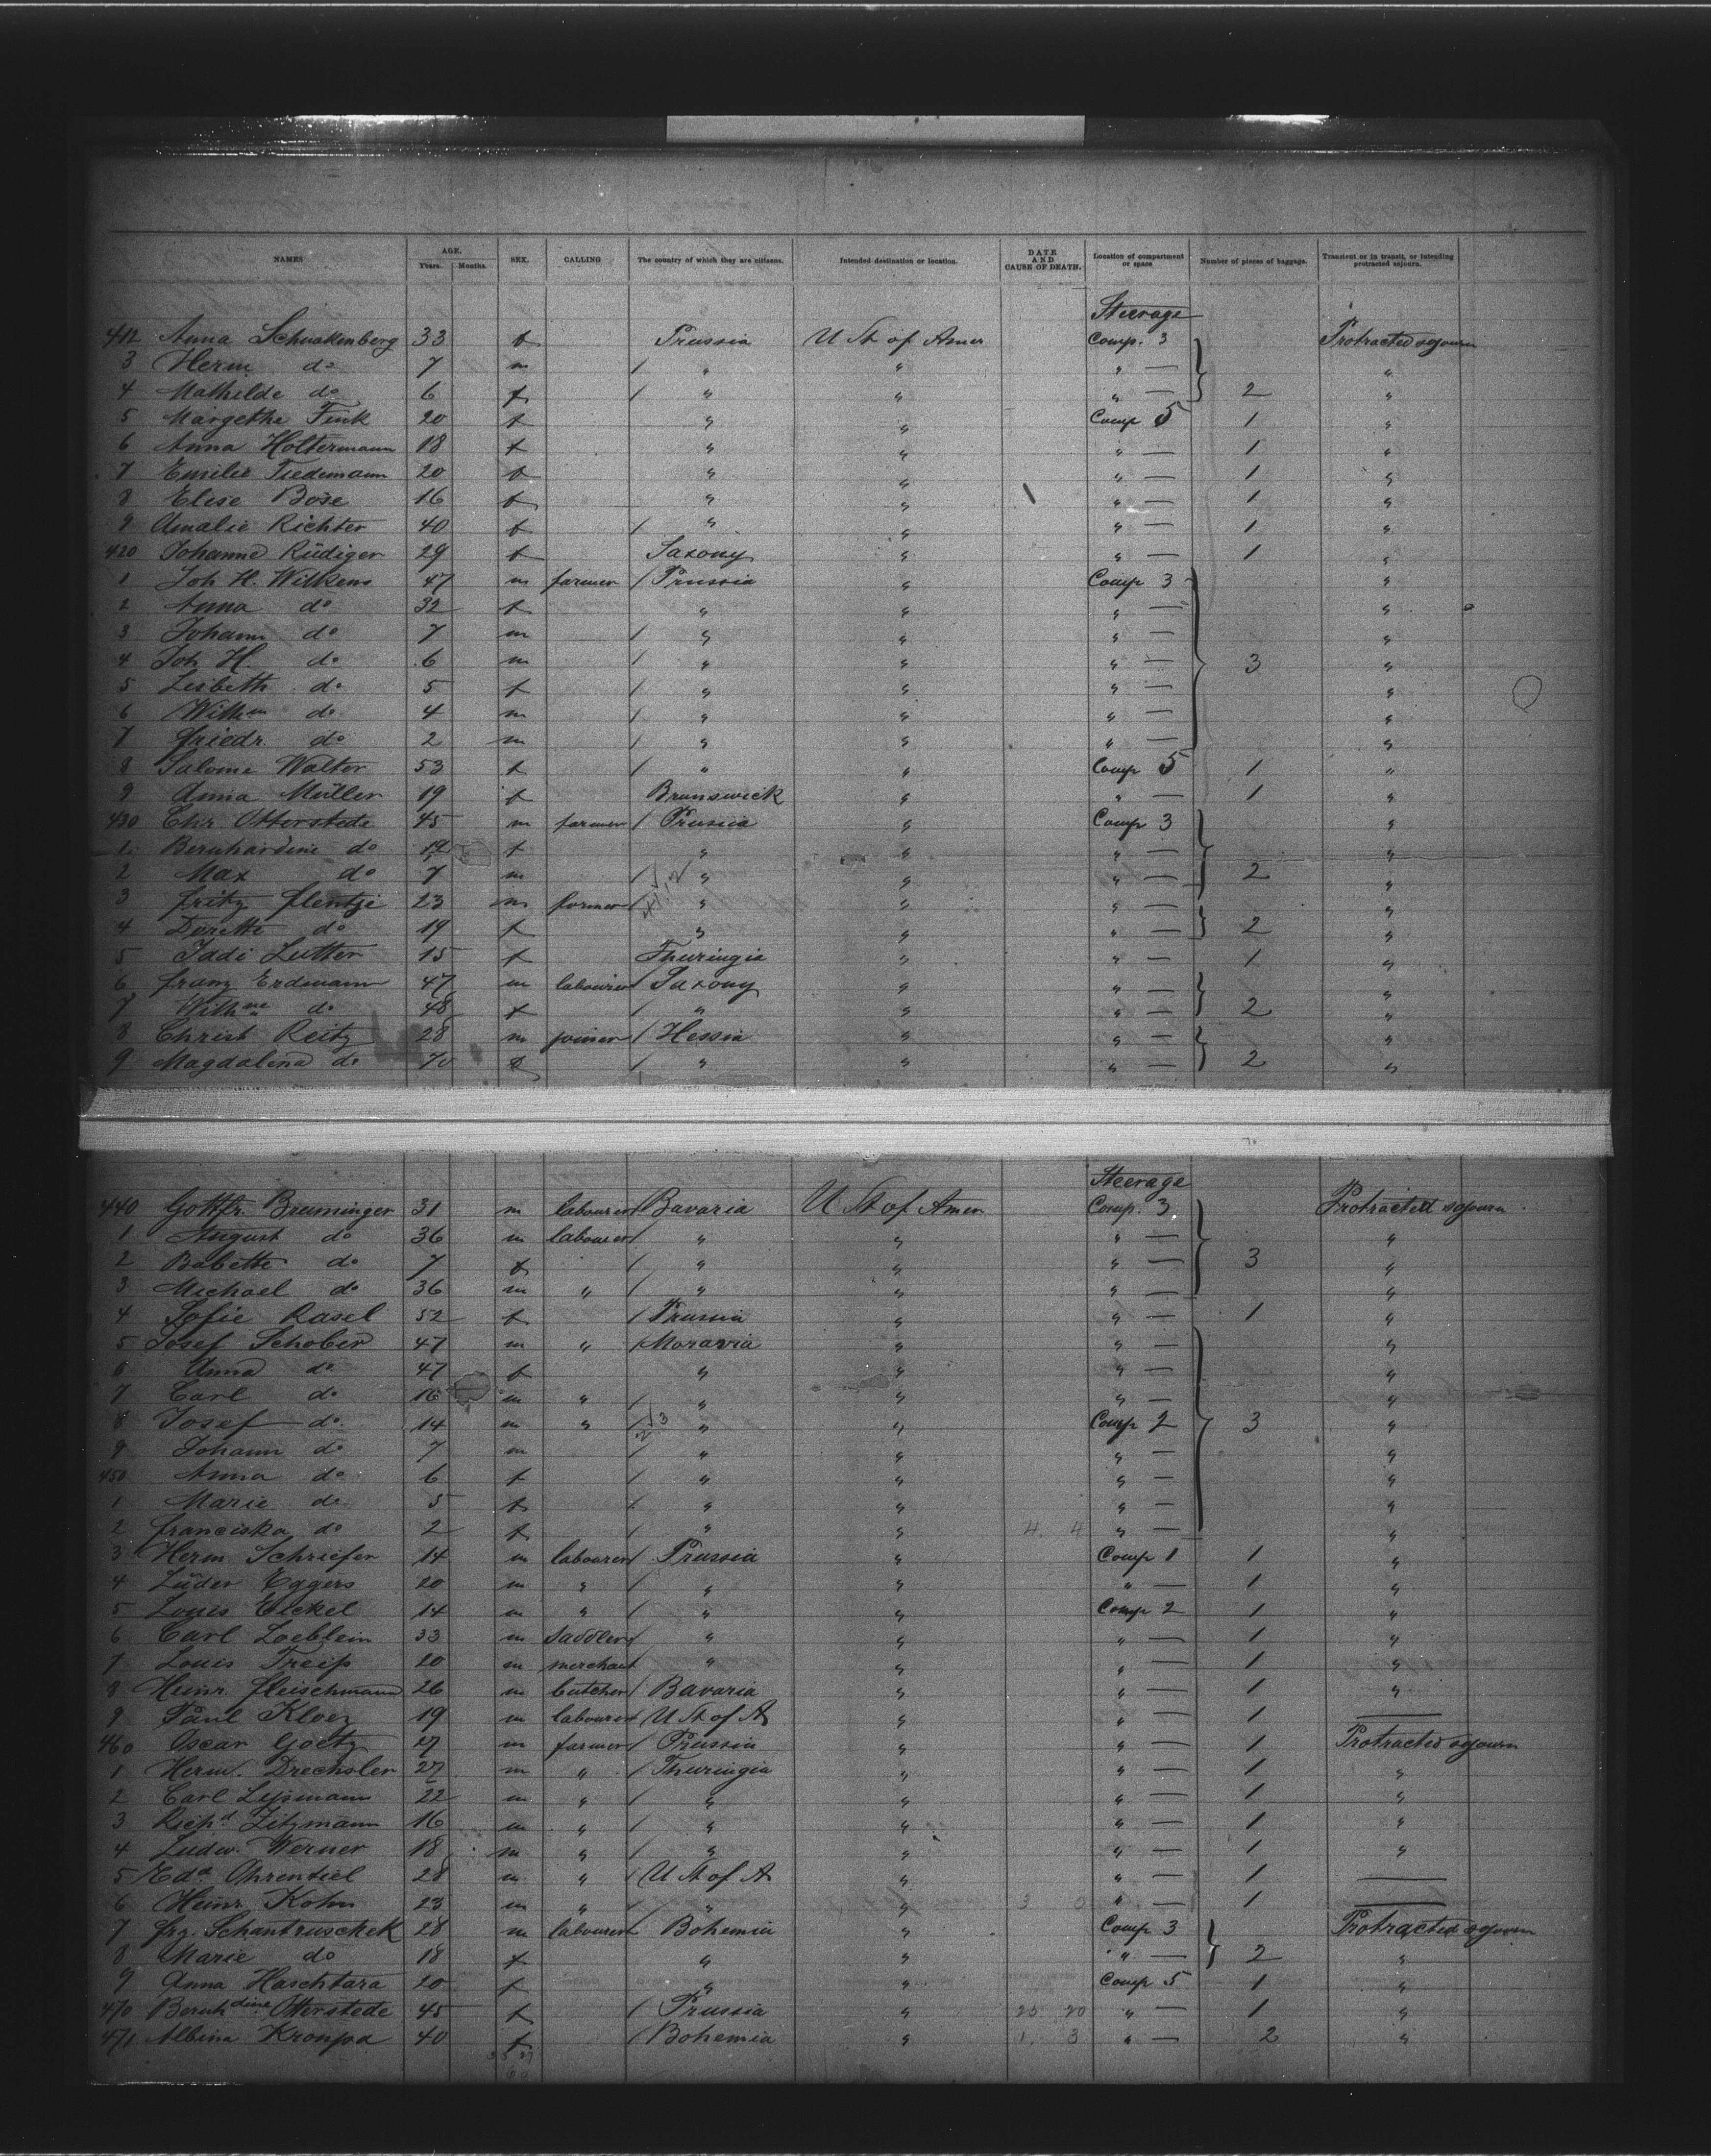 NAMES AGE. Years. Months. SEX. CALLING The country of which they are citizens. Intended destination or location. DATE AND CAUSE OF DEATH. Location of compartment or space Number of pieces of baggage. Transient or in transit, or intending protracted sojourn.
Steerage
412 Anna Schnakenberg 33 f Prussia U St of Amer Comp. 3 Protracted sojourn
3 Herm do 7 m / " " " — "
4 Mathilde do 6 f / " " " — 2 "
5 Margethe Fink 20 f " " Comp 5 1 "
6 Anna Holtermann 18 f " " " — 1 "
7 Emilie Tiedemann 20 f " " " — 1 "
8 Elise Bose 16 f " " " — 1 "
9 Amalie Richter 40 f / " " " — 1 "
420 Johanne Rüdiger 29 f Saxony " " — 1 "
1 Joh H. Wilkens 47 m farmer / Prussia " Comp 3 "
2 Anna do 32 f " " " — "
3 Johann do 7 m / " " " — "
4 Joh H. do 6 m / " " " — 3 "
5 Lisbeth do 5 f / " " " — "
6 Wilhm do 4 m / " " " — "
7 Friedr. do 2 m / " " " — "
8 Salome Walter 53 f / " " Comp 5 1 "
9 Anna Müller 19 f Brunswick " " — 1 "
430 Chr. Otterstede 45 m farmer / Prussia " Comp 3 "
1 Bernhardine do f " " " — "
2 Max do 7 m / " " " — 2 "
3 Fritz Flentje 23 m farmer / " " " — "
4 Dorette do 19 f " " " — 2 "
5 Jadi Lutter 15 f Thuringia " " — 1 "
6 Franz Erdmann 47 m labourer Saxony " " — "
7 Wilhne do 48 f / " " " — 2 "
8 Christ Reitz 28 m joiner / Hessia " " — "
9 Magdalena do 70 f / " " " — 2 "
Steerage
440 Gottfr. Breuninger 31 m labourer / Bavaria U St of Amer Comp. 3 Protracted sojourn
1 August do 36 m labourer / " " " — "
2 Babette do 7 f / " " " — 3 "
3 Michael do 36 m " / " " " — "
4 Sofie Rasel 52 f / Prussia " " — 1 "
5 Josef Schober 47 m " / Moravia " " — "
6 Anna do 47 f " " " — "
7 Carl do 16 m " / " " " — "
8 Josef do 14 m " / " " Comp 2 3 "
9 Johann do 7 m / " " " — "
450 Anna do 6 f / " " " — "
1 Marie do 5 f / " " " — "
2 Franciska do 2 f / " " 4. 4 " — "
3 Herm Schriefer 14 m labourer / Prussia " Comp 1 1 "
4 Lüder Eggers 20 m " / " " " — 1 "
5 Louis Eickel 14 m " / " " Comp 2 1 "
6 Carl Loeblein 33 m saddler / " " " — 1 "
7 Louis Treiss 20 m merchant " " " — 1 "
8 Heinr. Fleischmann 26 m butcher / Bavaria " " — 1 "
9 Paul Kloez 19 m labourer U St of A " " — 1 —
460 Oscar Goetz 27 m farmer / Prussia " " — 1 Protracted sojourn
1 Herm. Drechsler 27 m " / Thuringia " " — 1 "
2 Carl Lissmann 22 m " / " " " — 1 "
3 Richd Zitzmann 16 m " / " " " — 1 "
4 Ludw. Werner 18 m " / " " " — 1 "
5 Edd Ohrentiel 28 m " / U St of A " " — 1 —
6 Heinr. Kohn 23 m " / " " 3 0 " — 1 —
7 Frz. Schantruschek 28 m labourer Bohemia " Comp 3 Protracted sojourn
8 Marie do 18 f " " " — 2 "
9 Anna Haschtara 20 f " " Comp 5 1 "
470 Bernhdine Otterstede 45 f / Prussia " 20 20 " — 1 "
471 Albina Kroupa 40 f / Bohemia " 1. 3 " — 2 "